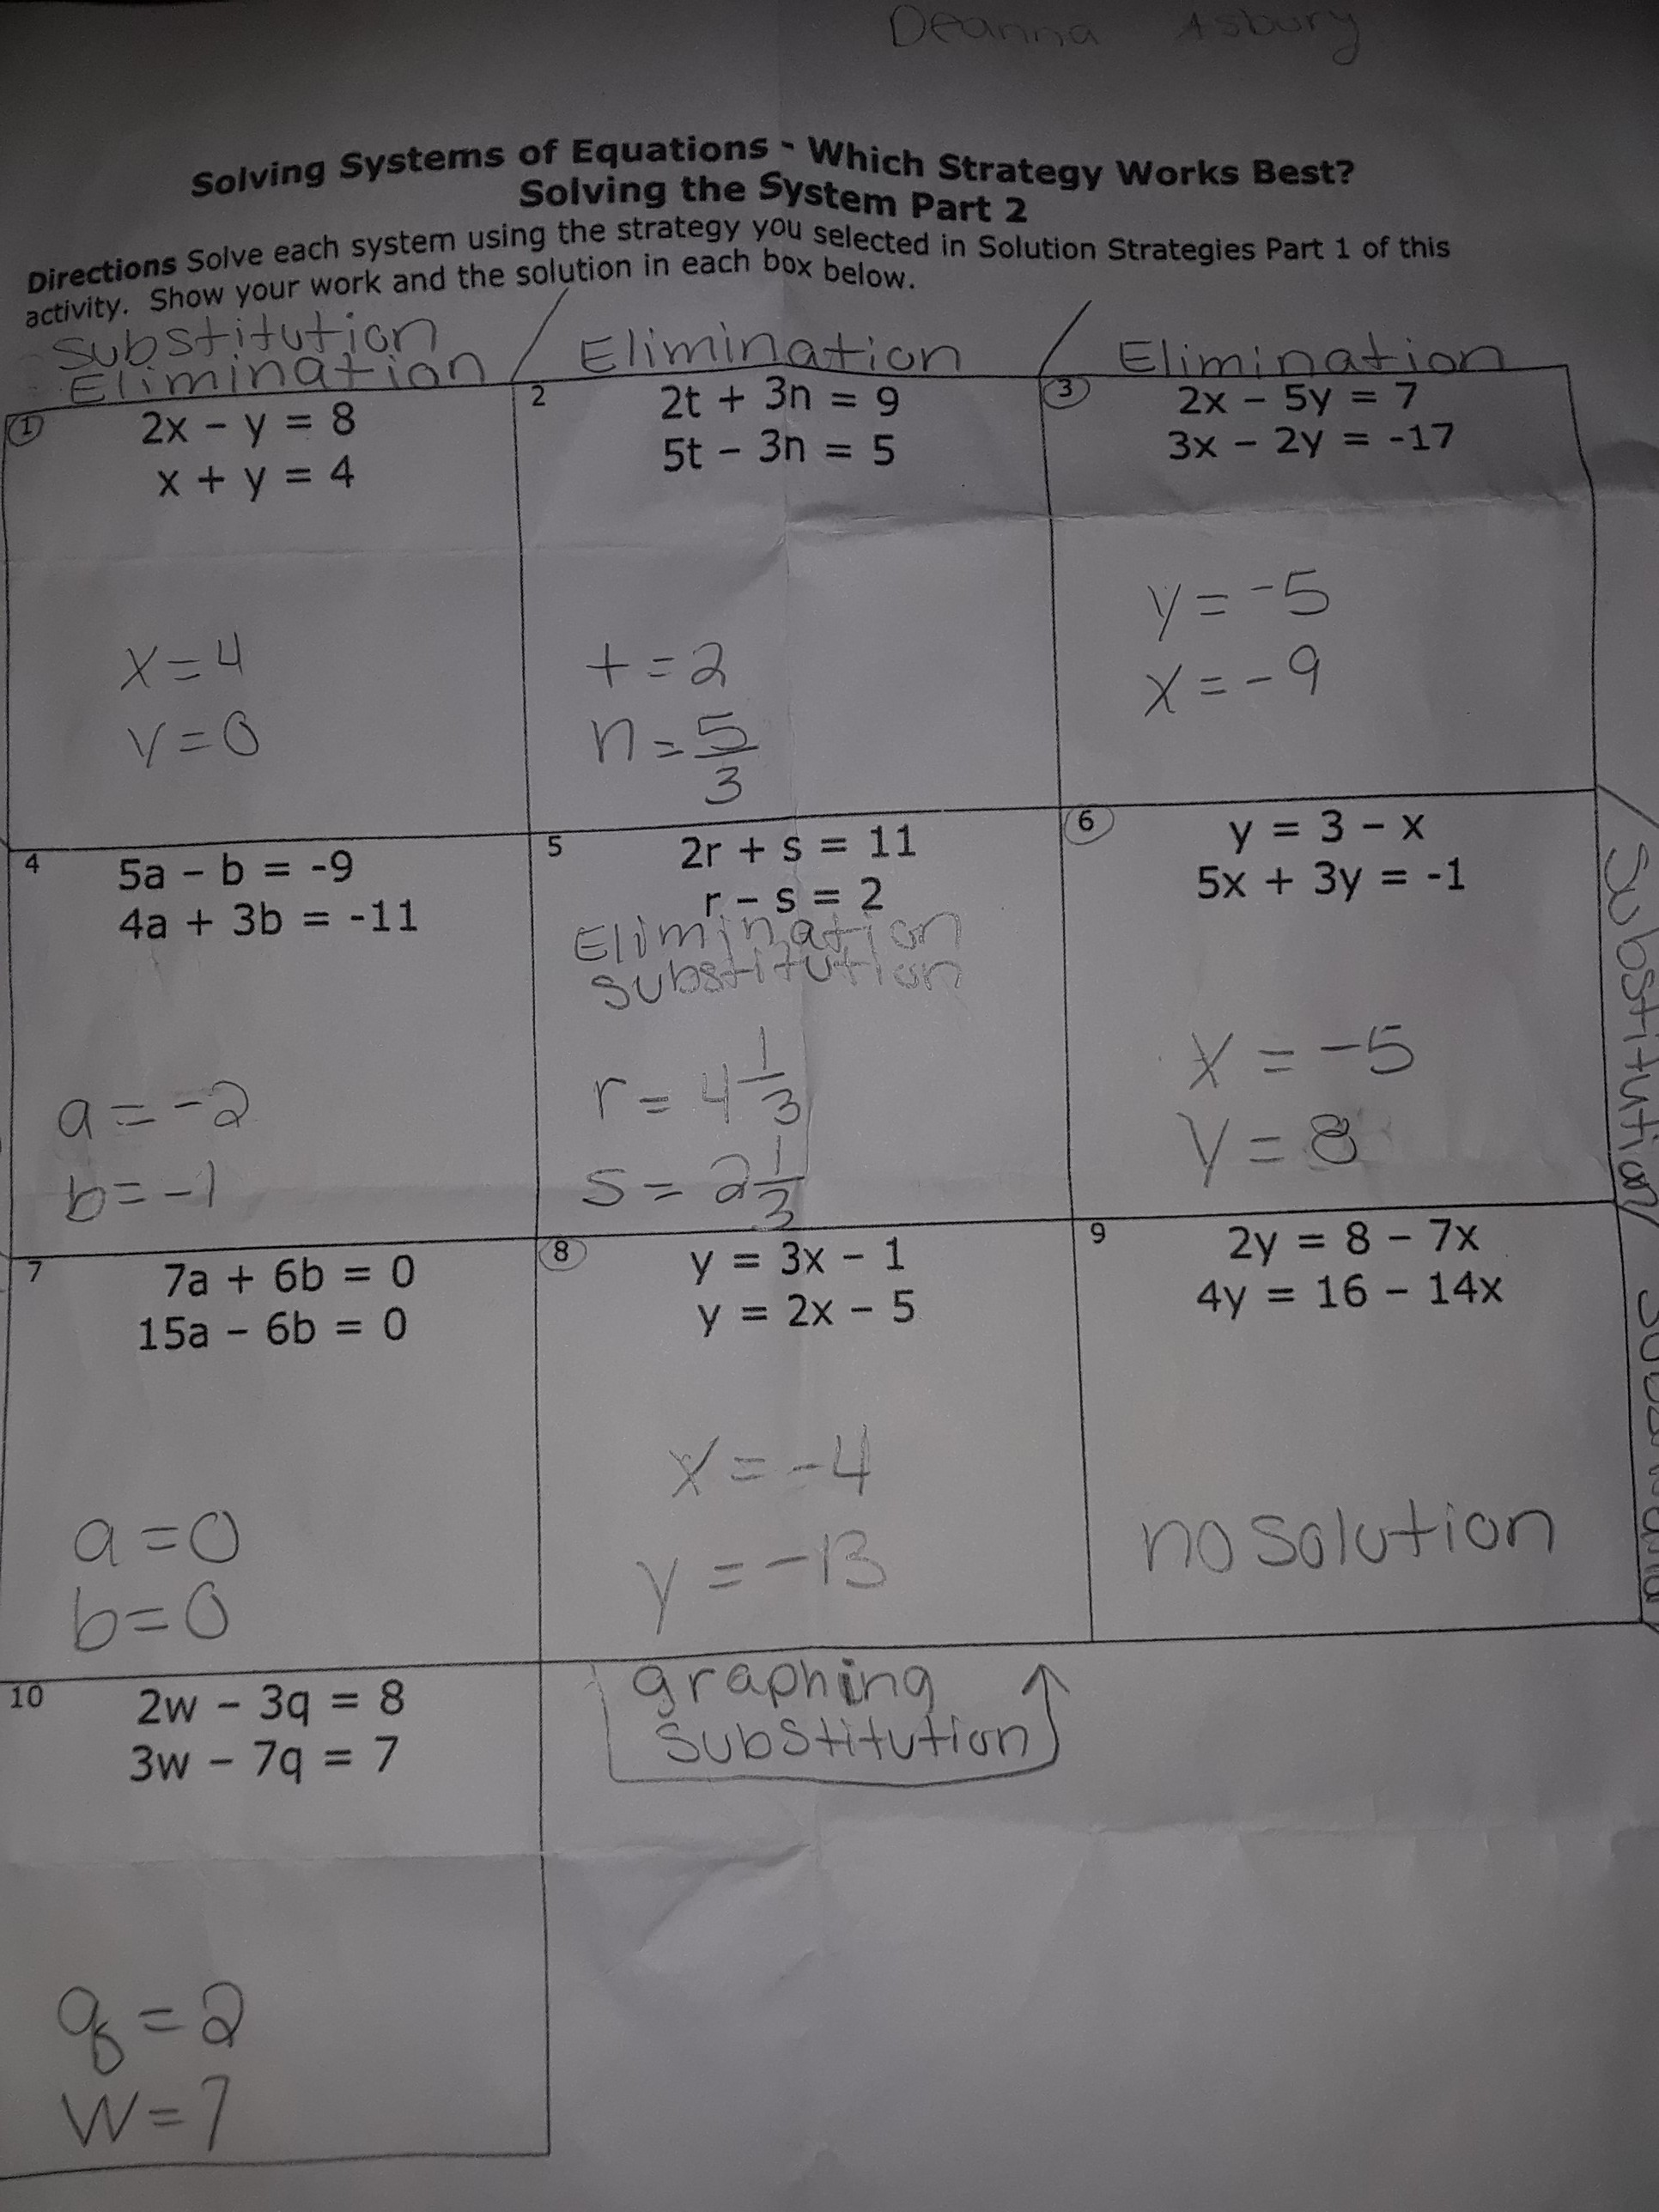 Deanna Asbury
Solving Systems of Equations - Which Strategy Works Best?
Solving the System Part 2
Directions Solve each system using the strategy you selected in Solution Strategies Part 1 of this
activity. Show your work and the solution in each box below.
Substitution
Elimination
1
2x - y = 8
x + y = 4
x = 4
y = 0
Elimination
2
2t + 3n = 9
5t - 3n = 5
t = 2
n = 5/3
Elimination
3
2x - 5y = 7
3x - 2y = -17
y = -5
x = -9
4
5a - b = -9
4a + 3b = -11
a = -2
b = -1
5
2r + s = 11
r - s = 2
Elimination
Substitution
r = 4 1/3
s = 2 1/3
6
y = 3 - x
5x + 3y = -1
x = -5
y = 8
Substitution
7
7a + 6b = 0
15a - 6b = 0
a = 0
b = 0
8
y = 3x - 1
y = 2x - 5
x = -4
y = -13
9
2y = 8 - 7x
4y = 16 - 14x
no solution
10
2w - 3q = 8
3w - 7q = 7
q = 2
w = 7
graphing
substitution